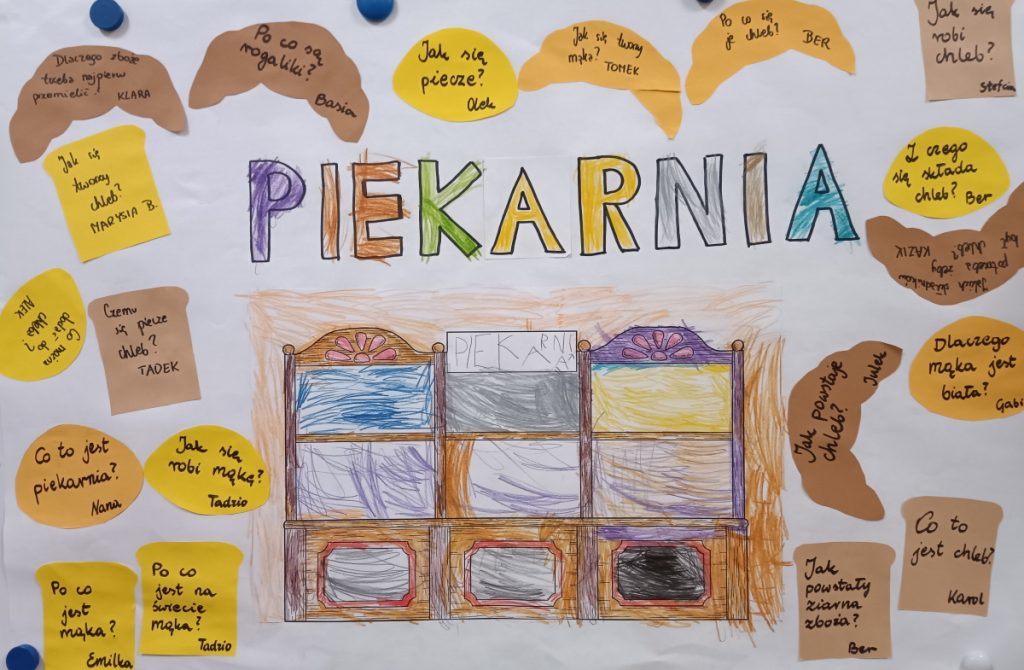 Dlaczego zboże
trzeba najpierw
przemielić?
KLARA
Po co są
rogaliki?
Basia
Jak się
piecze?
Olek
Jak się tworzy
mąka?
TOMEK
Po co się
je chleb?
BER
Jak się
robi
chleb?
Stefcia
Jak się
tworzy
chleb?
MARYSIA B.
PIEKARNIA
Z czego
się składa
chleb? Ber
Jakich składników
potrzeba żeby
był chleb? KAZIK
Co można
dodać do
chleba?
Czemu
się piecze
chleb?
TADEK
PIEKARNIA
Jak powstaje
chleb?
Julek
Dlaczego
mąka jest
biała?
Gabi
Co to jest
piekarnia?
Nana
Jak się
robi mąkę?
Tadzio
Po co
jest
mąka?
Emilka
Po co
jest na
świecie
mąka?
Tadzio
Jak
powstały
ziarna
zboża?
Ber
Co to
jest chleb?
Karol